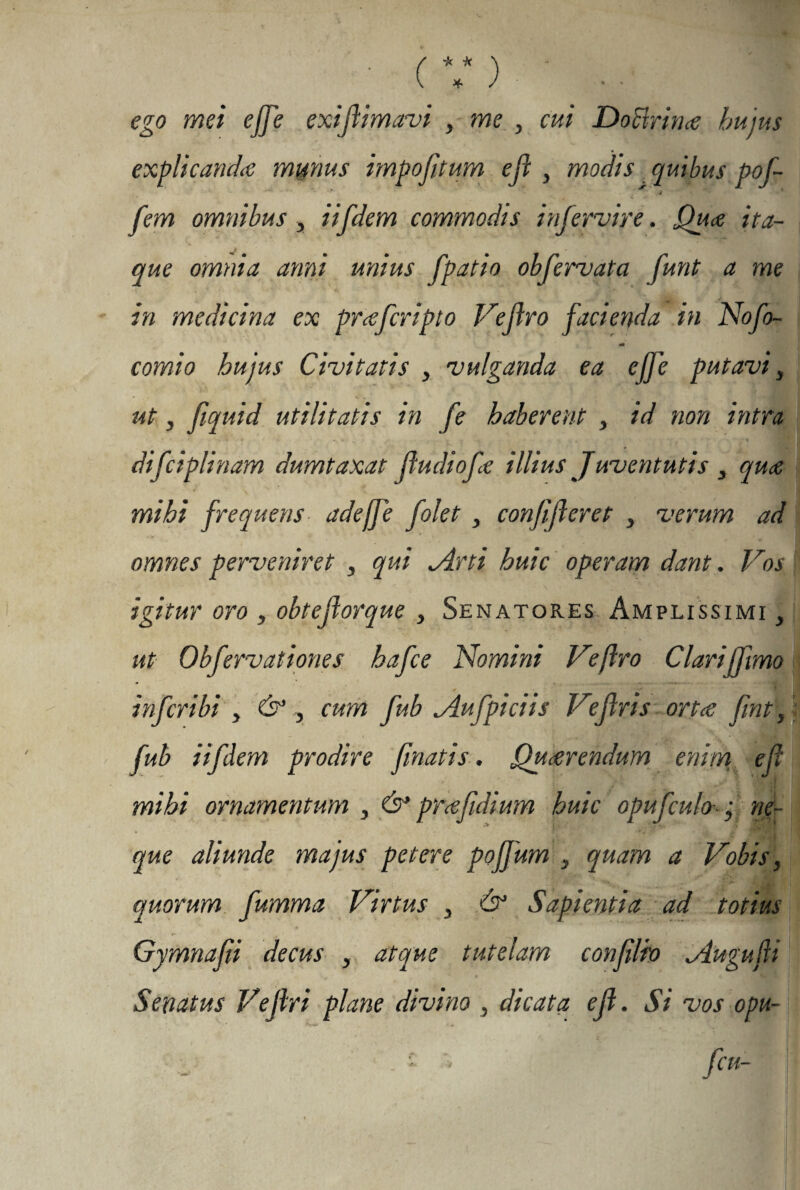 ( *** )
ego mei eſſe exiſtimavi , me , cui Doctrinæ hujus
explicandæ munus impoſitum eſt , modis quibus poſ-
ſem omnibus , iiſdem commodis inſervire. Quæ ita-
que omnia anni unius ſpatio obſervata ſunt a me
in medicina ex præſcripto Veſtro facienda in Noſo-
comio hujus Civitatis , vulganda ea eſſe putavi ,
ut , ſiquid utilitatis in ſe haberent , id non intra
diſciplinam dumtaxat ſtudioſæ illius Juventutis , quæ
mihi frequens adeſſe ſolet , conſiſteret , verum ad
omnes perveniret , qui Arti huic operam dant. Vos
igitur oro , obteſtorque , SENATORES AMPLISSIMI ,
ut Obſervationes haſce Nomini Veſtro Clariſſimo
inſcribi , & , cum ſub Auſpiciis Veſtris ortæ ſint ,
ſub iiſdem prodire ſinatis. Quærendum enim eſt
mihi ornamentum , & præſidium huic opuſculo ; ne-
que aliunde majus petere poſſum , quam a Vobis ,
quorum ſumma Virtus , & Sapientia ad totius
Gymnaſii decus , atque tutelam conſilio Auguſti
Senatus Veſtri plane divino , dicata eſt. Si vos opu-
ſcu-